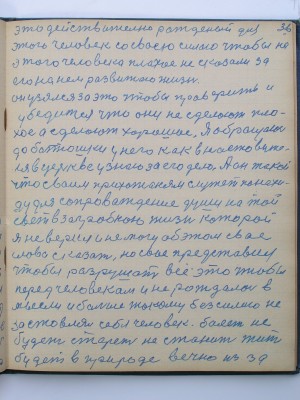 36
это действительно рожденый для
этого человек со своею силию чтобы не
этого человека плохое не сказали за
его на нем развитаю жизн.
он узялся за это чтобы проверить и
убедится что они не сделают пло-
хое а сделают хорошае. Я обращаюсь
до батюшки у него как в настоятеля
в церкве узнаю за его дело. А он такой
что своим прихожанам служет
для сопровождение души на той
свет в загробною жизн которой
я не верил и немогу об этом свае
слово сказат, но свае представлу
чтобы разрушат все это чтобы
перед человекам и не рождалос в
мысли и болше такому без силию не
заставлял себя человек. болет не
будет старет не станит жит
будет в природе вечно из за